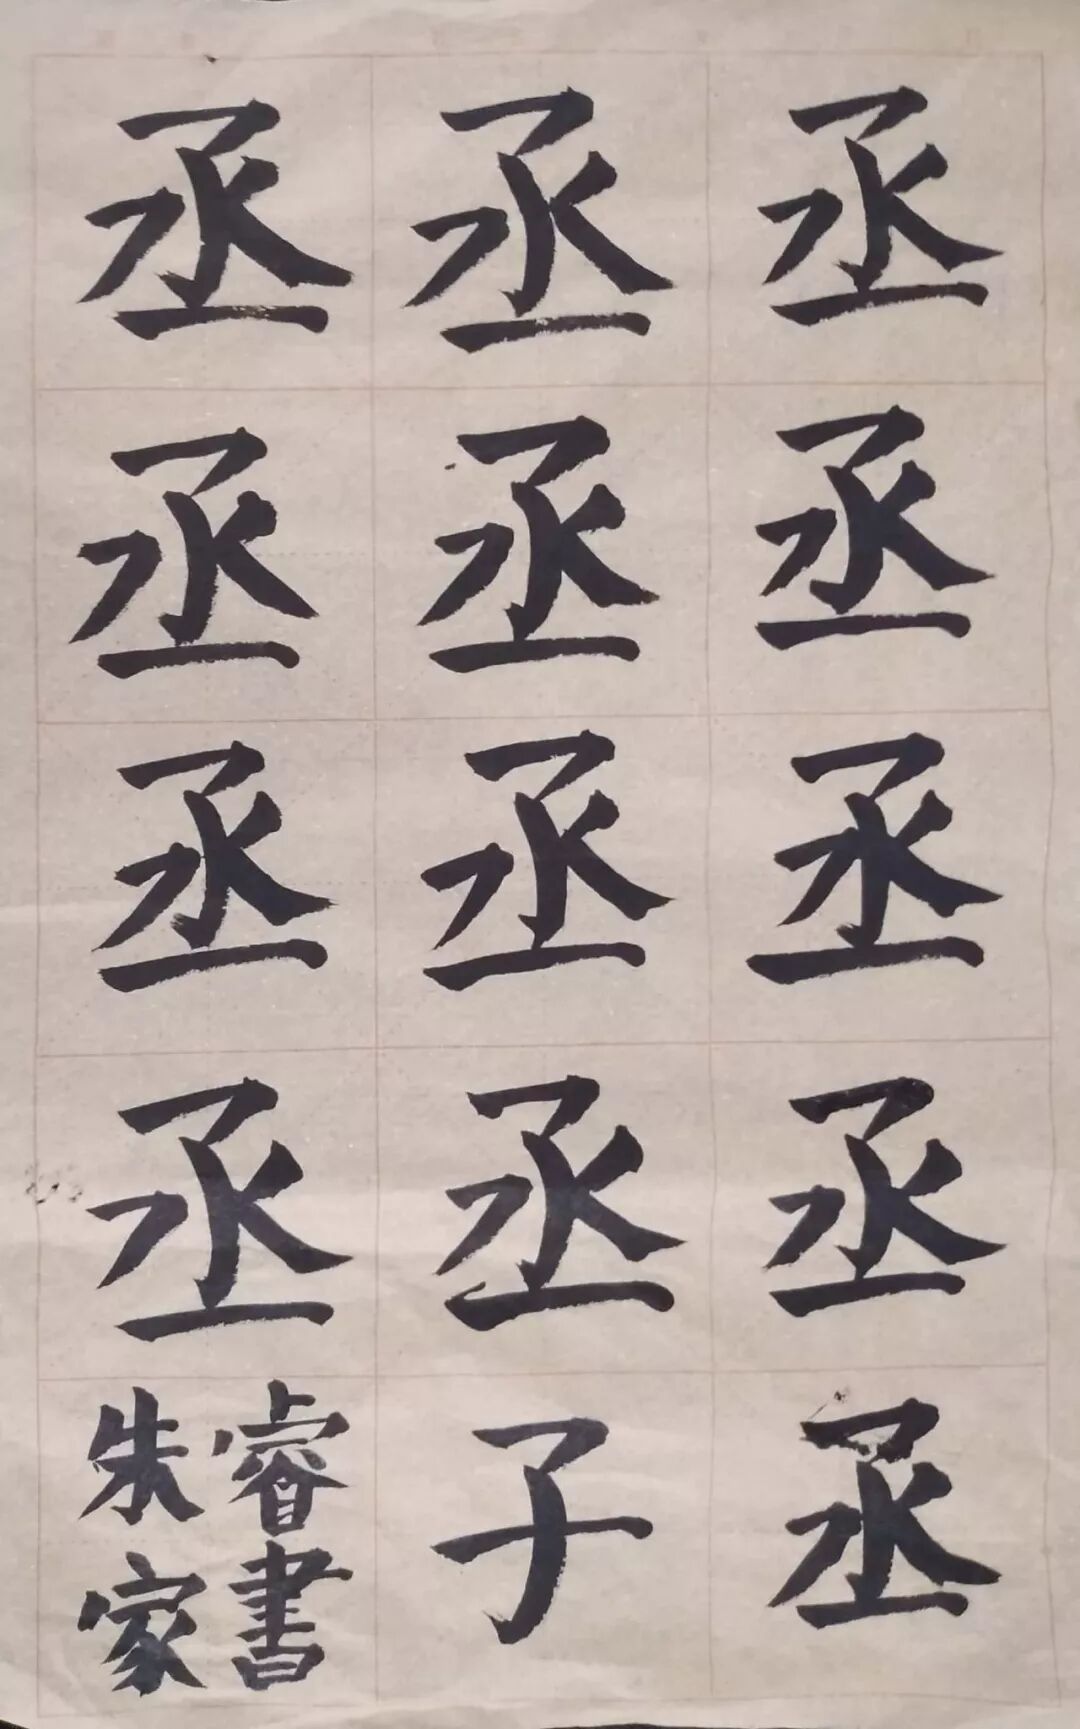 丞丞丞丞丞
丞丞丞丞子
丞丞丞丞
朱家
睿書